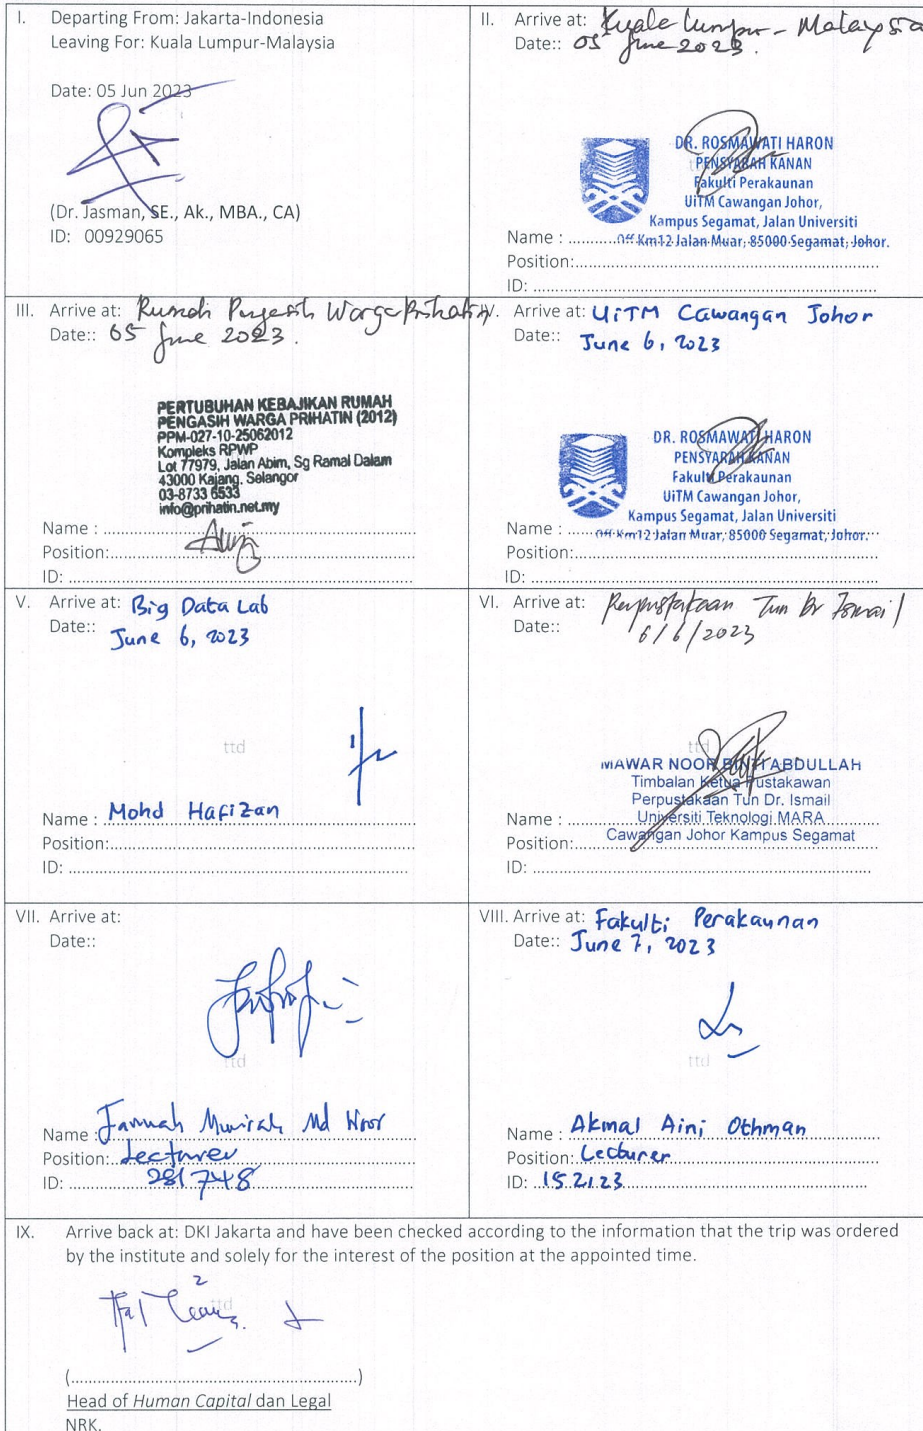 I. Departing From: Jakarta-Indonesia
Leaving For: Kuala Lumpur-Malaysia
Date: 05 Jun 2023
(Dr. Jasman, SE., Ak., MBA., CA)
ID: 00929065
II. Arrive at: Kuala Lumpur - Malaysia
Date:: 05 June 2023.
DR. ROSMAWATI HARON
PENSYARAH KANAN
Fakulti Perakaunan
UiTM Cawangan Johor,
Kampus Segamat, Jalan Universiti
Off Km12 Jalan Muar, 85000 Segamat, Johor.
Name :
Position:
ID:
III. Arrive at: Rumah Pengasih Warga Prihatin
Date:: 05 June 2023.
PERTUBUHAN KEBAJIKAN RUMAH
PENGASIH WARGA PRIHATIN (2012)
PPM-027-10-25062012
Kompleks RPWP
Lot 77979, Jalan Abim, Sg Ramal Dalam
43000 Kajang, Selangor
03-8733 6533
info@prihatin.net.my
Name :
Position:
ID:
IV. Arrive at: UiTM Cawangan Johor
Date:: June 6, 2023
DR. ROSMAWATI HARON
PENSYARAH KANAN
Fakulti Perakaunan
UiTM Cawangan Johor,
Kampus Segamat, Jalan Universiti
Off Km12 Jalan Muar, 85000 Segamat, Johor.
Name :
Position:
ID:
V. Arrive at: Big Data Lab
Date:: June 6, 2023
ttd
Name : Mohd Hafizan
Position:
ID:
VI. Arrive at: Perpustakaan Tun Dr Ismail
Date:: 6/6/2023
ttd
MAWAR NOOR BINTI ABDULLAH
Timbalan Ketua Pustakawan
Perpustakaan Tun Dr. Ismail
Universiti Teknologi MARA
Cawangan Johor Kampus Segamat
Name :
Position:
ID:
VII. Arrive at:
Date::
ttd
Name : Jannah Munirah Md Noor
Position: Lecturer
ID: 281748
VIII. Arrive at: Fakulti Perakaunan
Date:: June 7, 2023
ttd
Name : Akmal Aini Othman
Position: Lecturer
ID: 152123
IX. Arrive back at: DKI Jakarta and have been checked according to the information that the trip was ordered
by the institute and solely for the interest of the position at the appointed time.
ttd
(..........................................................)
Head of Human Capital dan Legal
NRK.